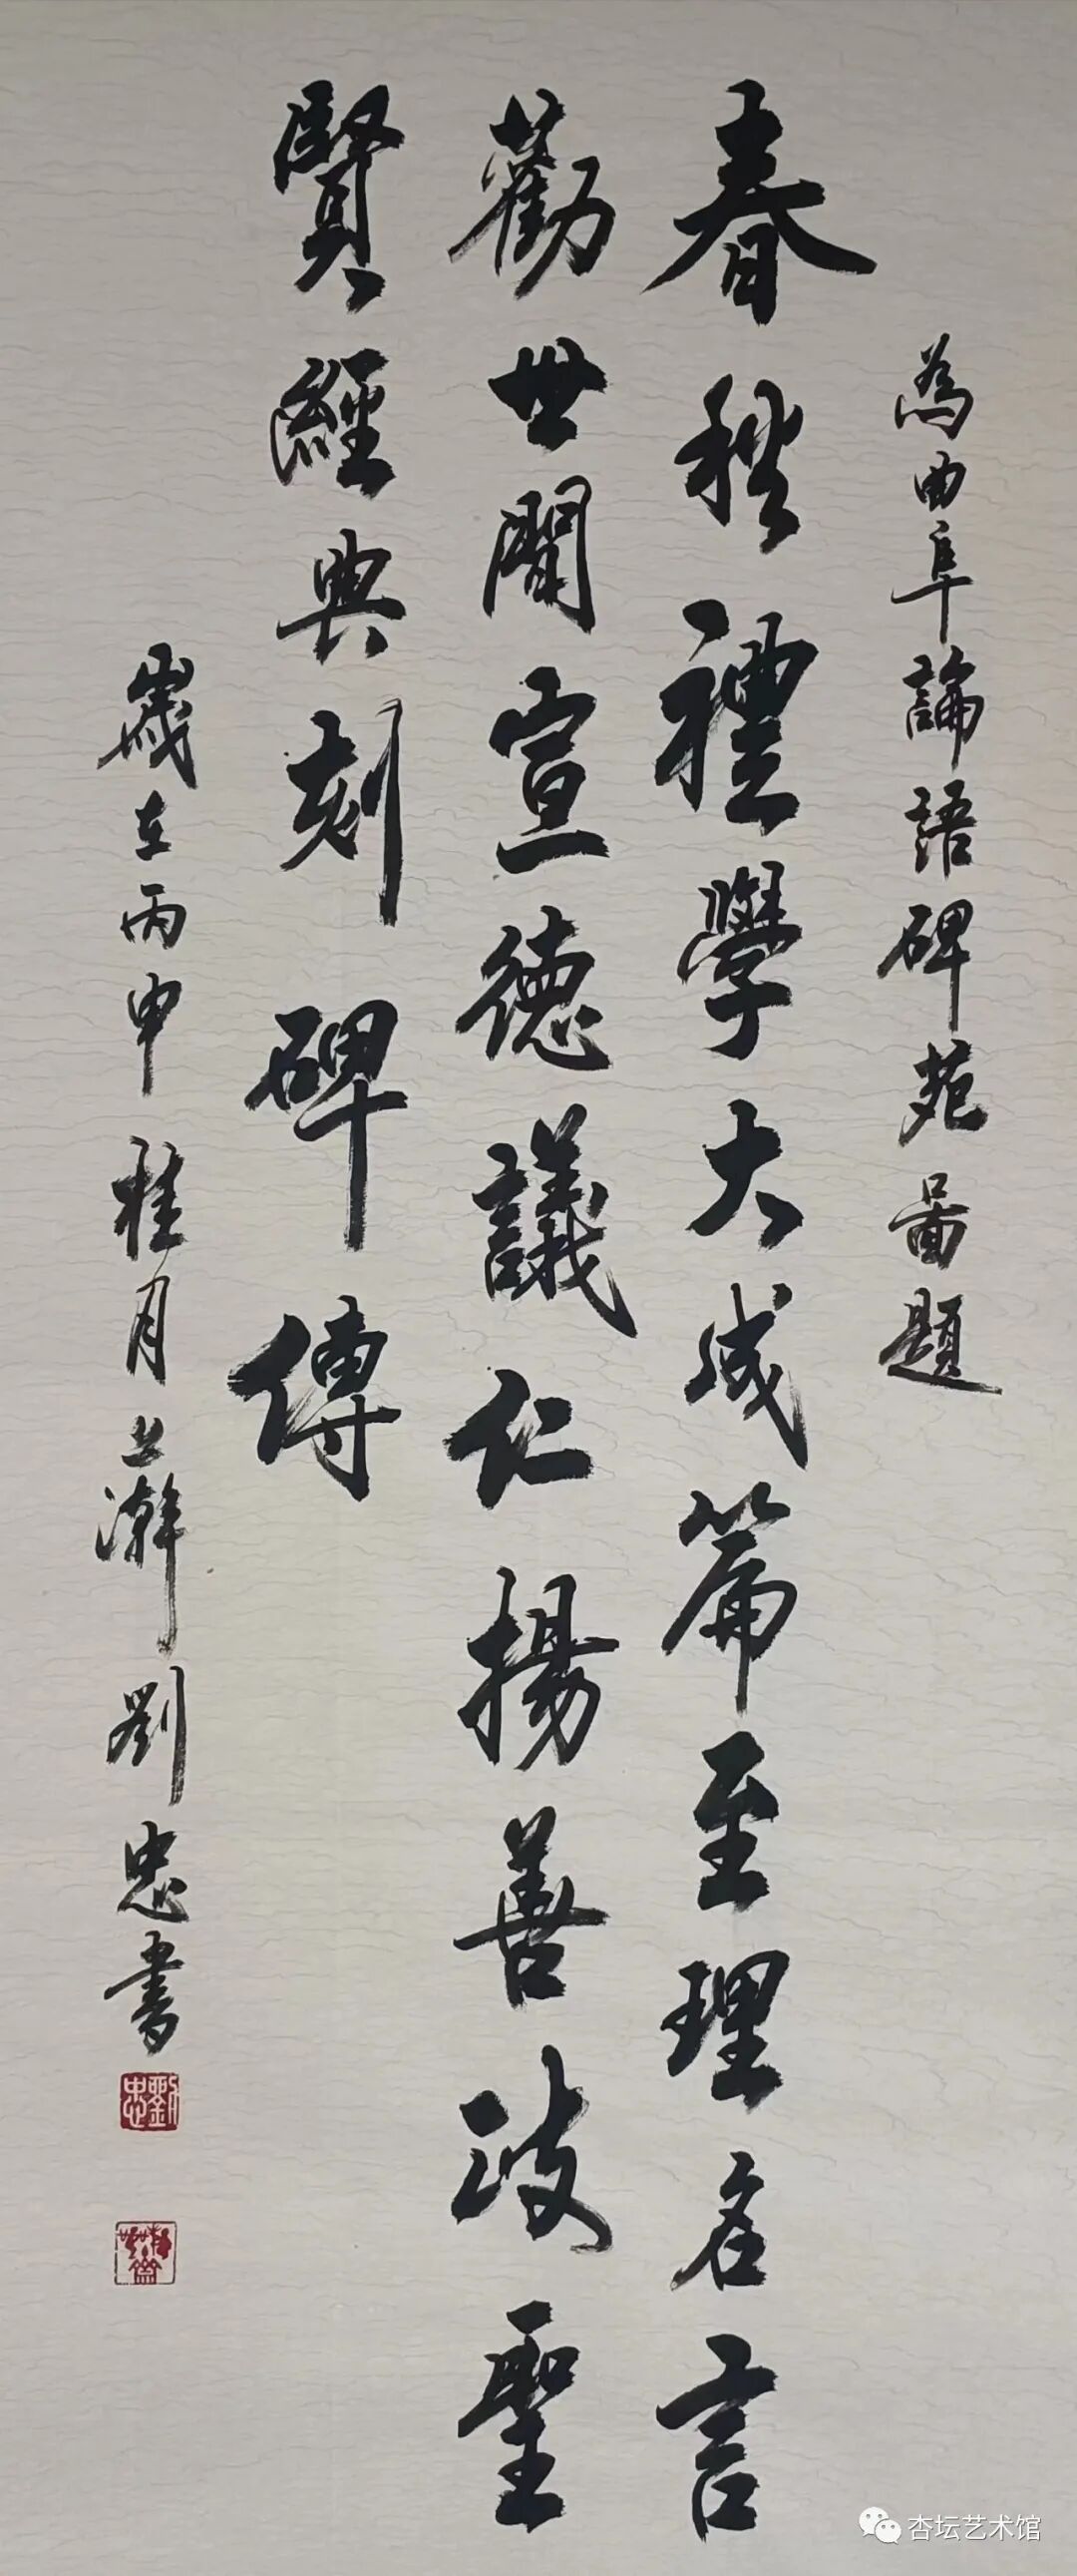 為曲阜論語碑苑啚題
春秋禮學大成篇至理名言
勸世間宣德議仁揚善政聖
賢經典刻碑傳
歲在丙申桂月上澣劉忠書
劉忠
杏坛艺术馆